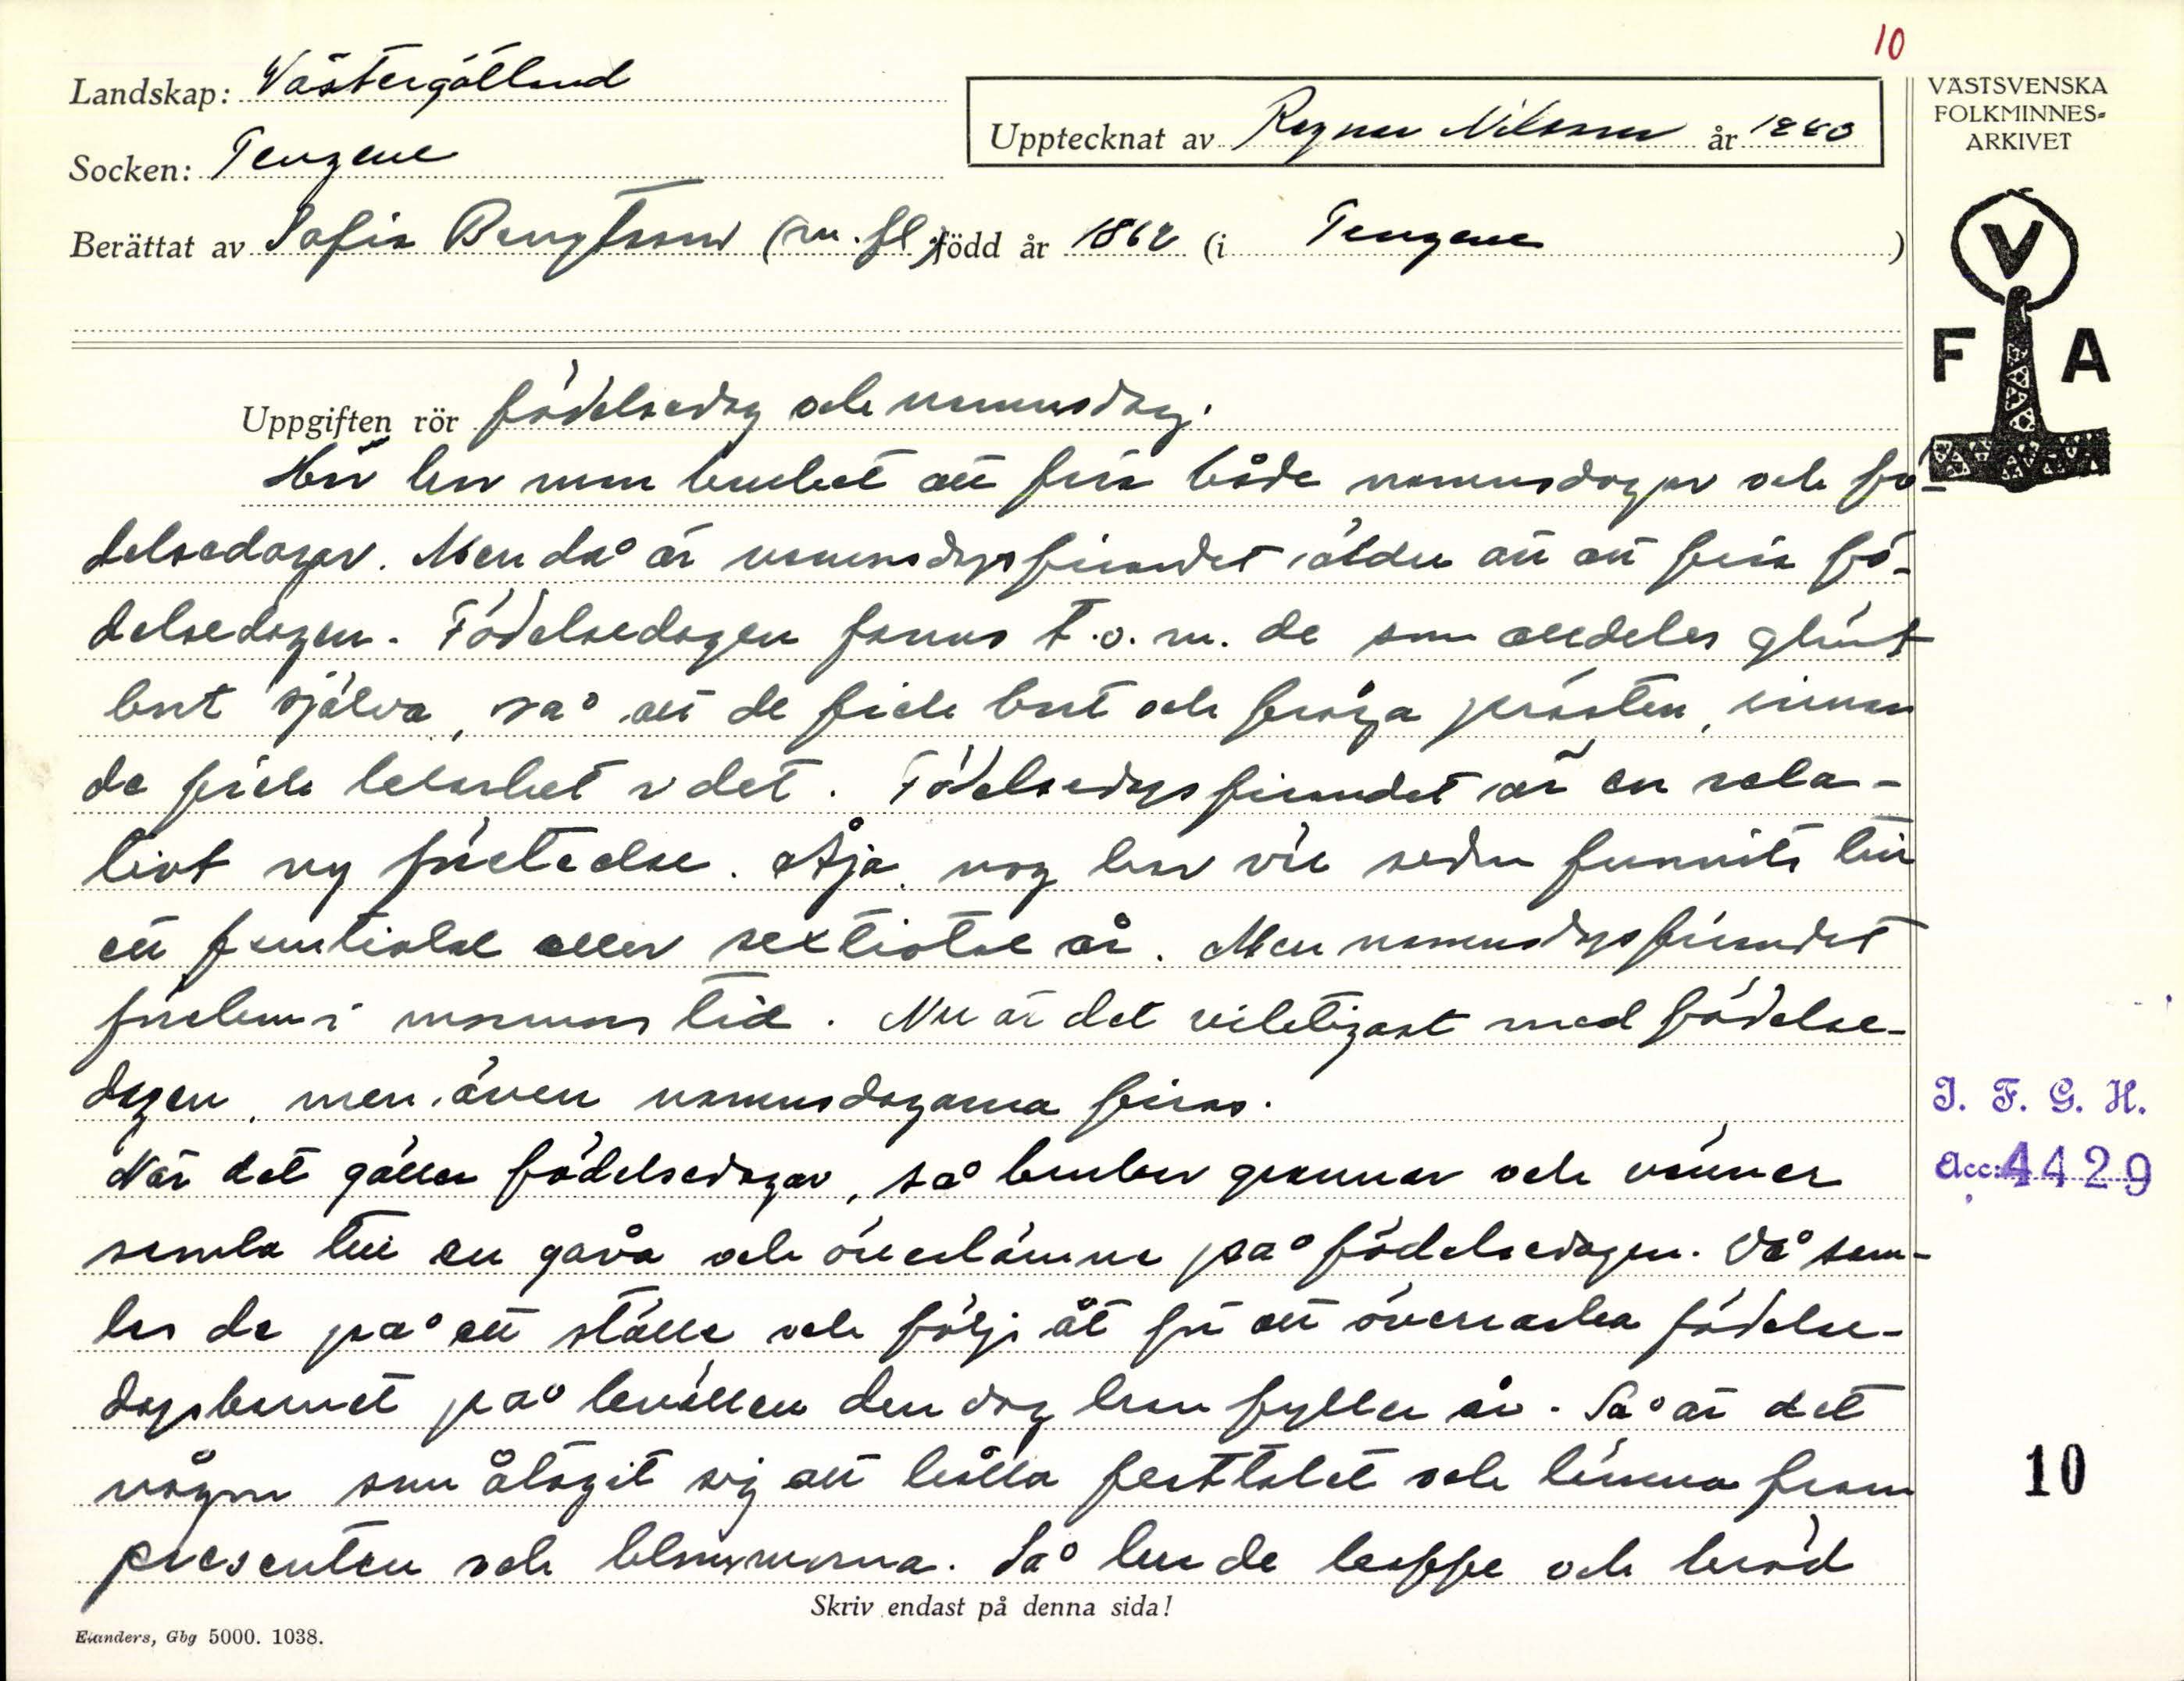 10
Landskap: Västergötland
VÄSTSVENSKA
FOLKMINNES-
ARKIVET
Upptecknat av Ragnar Nilsson år
Socken: Tengene
Berättat av Sofia Bengtsson (m. fl.) född år 1862 (i Tengene )
V
F A
Uppgiften rör födelsedag och namnsdag.
Här har man brukat att fira både namnsdagar och fö-
delsedagar. Men då är namnsdagsfirandet äldre än att fira fö-
delsedagen. Födelsedagen fanns t.o.m. de som alldeles glömt
bort själva, så att de fick bort och fråga prästen, innan
de fick klarhet i det. Födelsedagsfirandet är en rela-
tivt ny företeelse. Åja, nog har väl seden funnits till
ett femtiotal eller sextiotal år. Men namnsdagsfirandet
förekom i mormors tid. Nu är det viktigast med födelse-
dagen, men även namnsdagarna firas.
När det gäller födelsedagar, så brukar grannar och vänner
samla till en gåva och överlämna på födelsedagen. Då sam-
las de på ett ställe och följs åt för att överraska födelse-
dagsbarnet på kvällen den dag han fyller år. Så är det
någon som åtagit sig att hålla festtalet och lämna fram
presenten och blommorna. Så har de kaffe och bröd
J. F. G. H.
Acc: 4429
10
Skriv endast på denna sida!
Elanders, Gbg 5000. 1038.